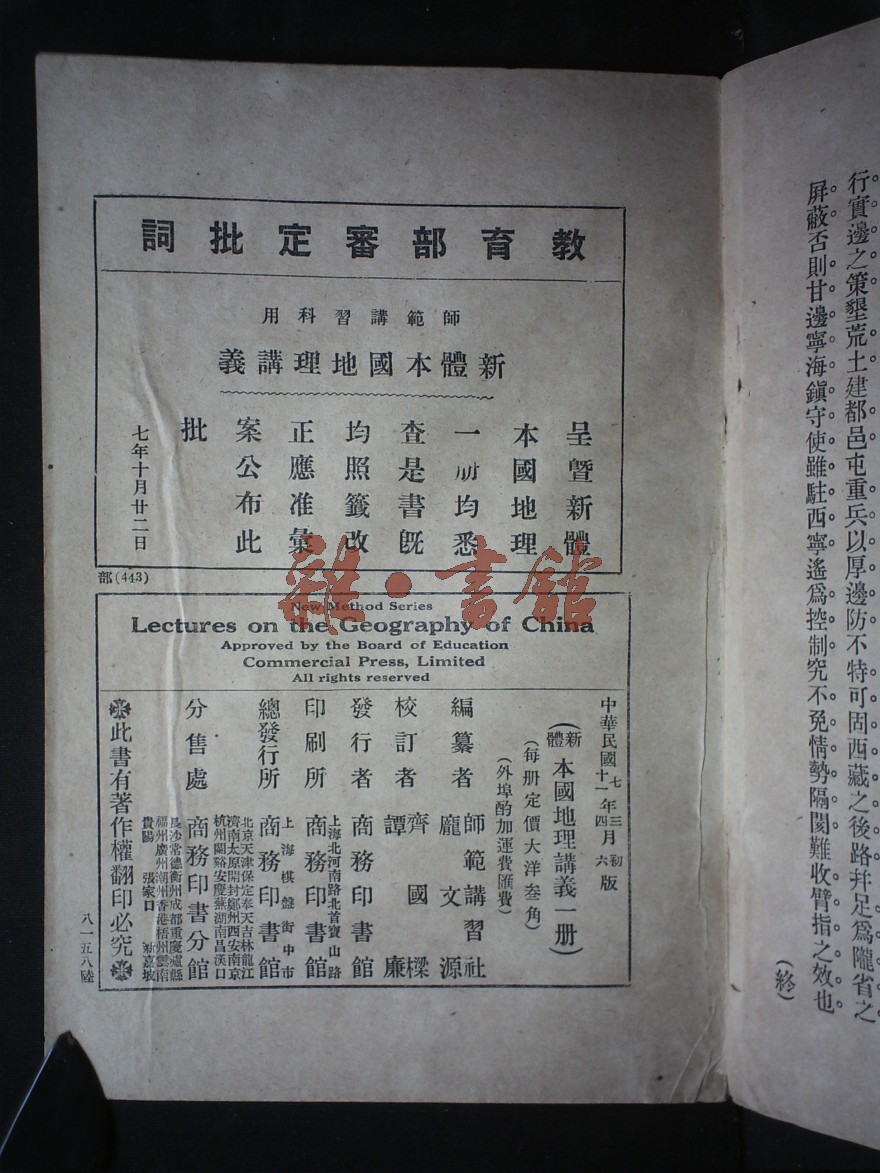 行實邊之策墾荒土建都邑屯重兵以厚邊防不特可固西藏之後路幷足爲隴省之
屏蔽否則甘邊寧海鎭守使雖駐西寧遙爲控制究不免情勢隔閡難收臂指之效也
(終)
教育部審定批詞
師範講習科用
新體本國地理講義
呈暨新體
本國地理
一册均悉
查是書旣
均照籤改
正應准彙
案公布此
批
七年十月廿二日
部(443)
New Method Series
Lectures on the Geography of China
Approved by the Board of Education
Commercial Press, Limited
All rights reserved
中華民國七年三月初版
十一年四月六版
(新體)本國地理講義一册
(每册定價大洋叁角)
(外埠酌加運費匯費)
編纂者 師範講習社
龐文源
校訂者 齊國樑
譚廉
發行者 商務印書館
印刷所 上海北河南路北首寶山路
商務印書館
總發行所 上海棋盤街中市
商務印書館
分售處 北京天津保定奉天吉林龍江
濟南太原開封鄭州西安南京
杭州蘭谿安慶蕪湖南昌漢口
商務印書分館
長沙常德衡州成都重慶瀘縣
福州廣州潮州香港梧州雲南
貴陽 張家口 新嘉坡
此書有著作權翻印必究
八一五八陸
雜·書館